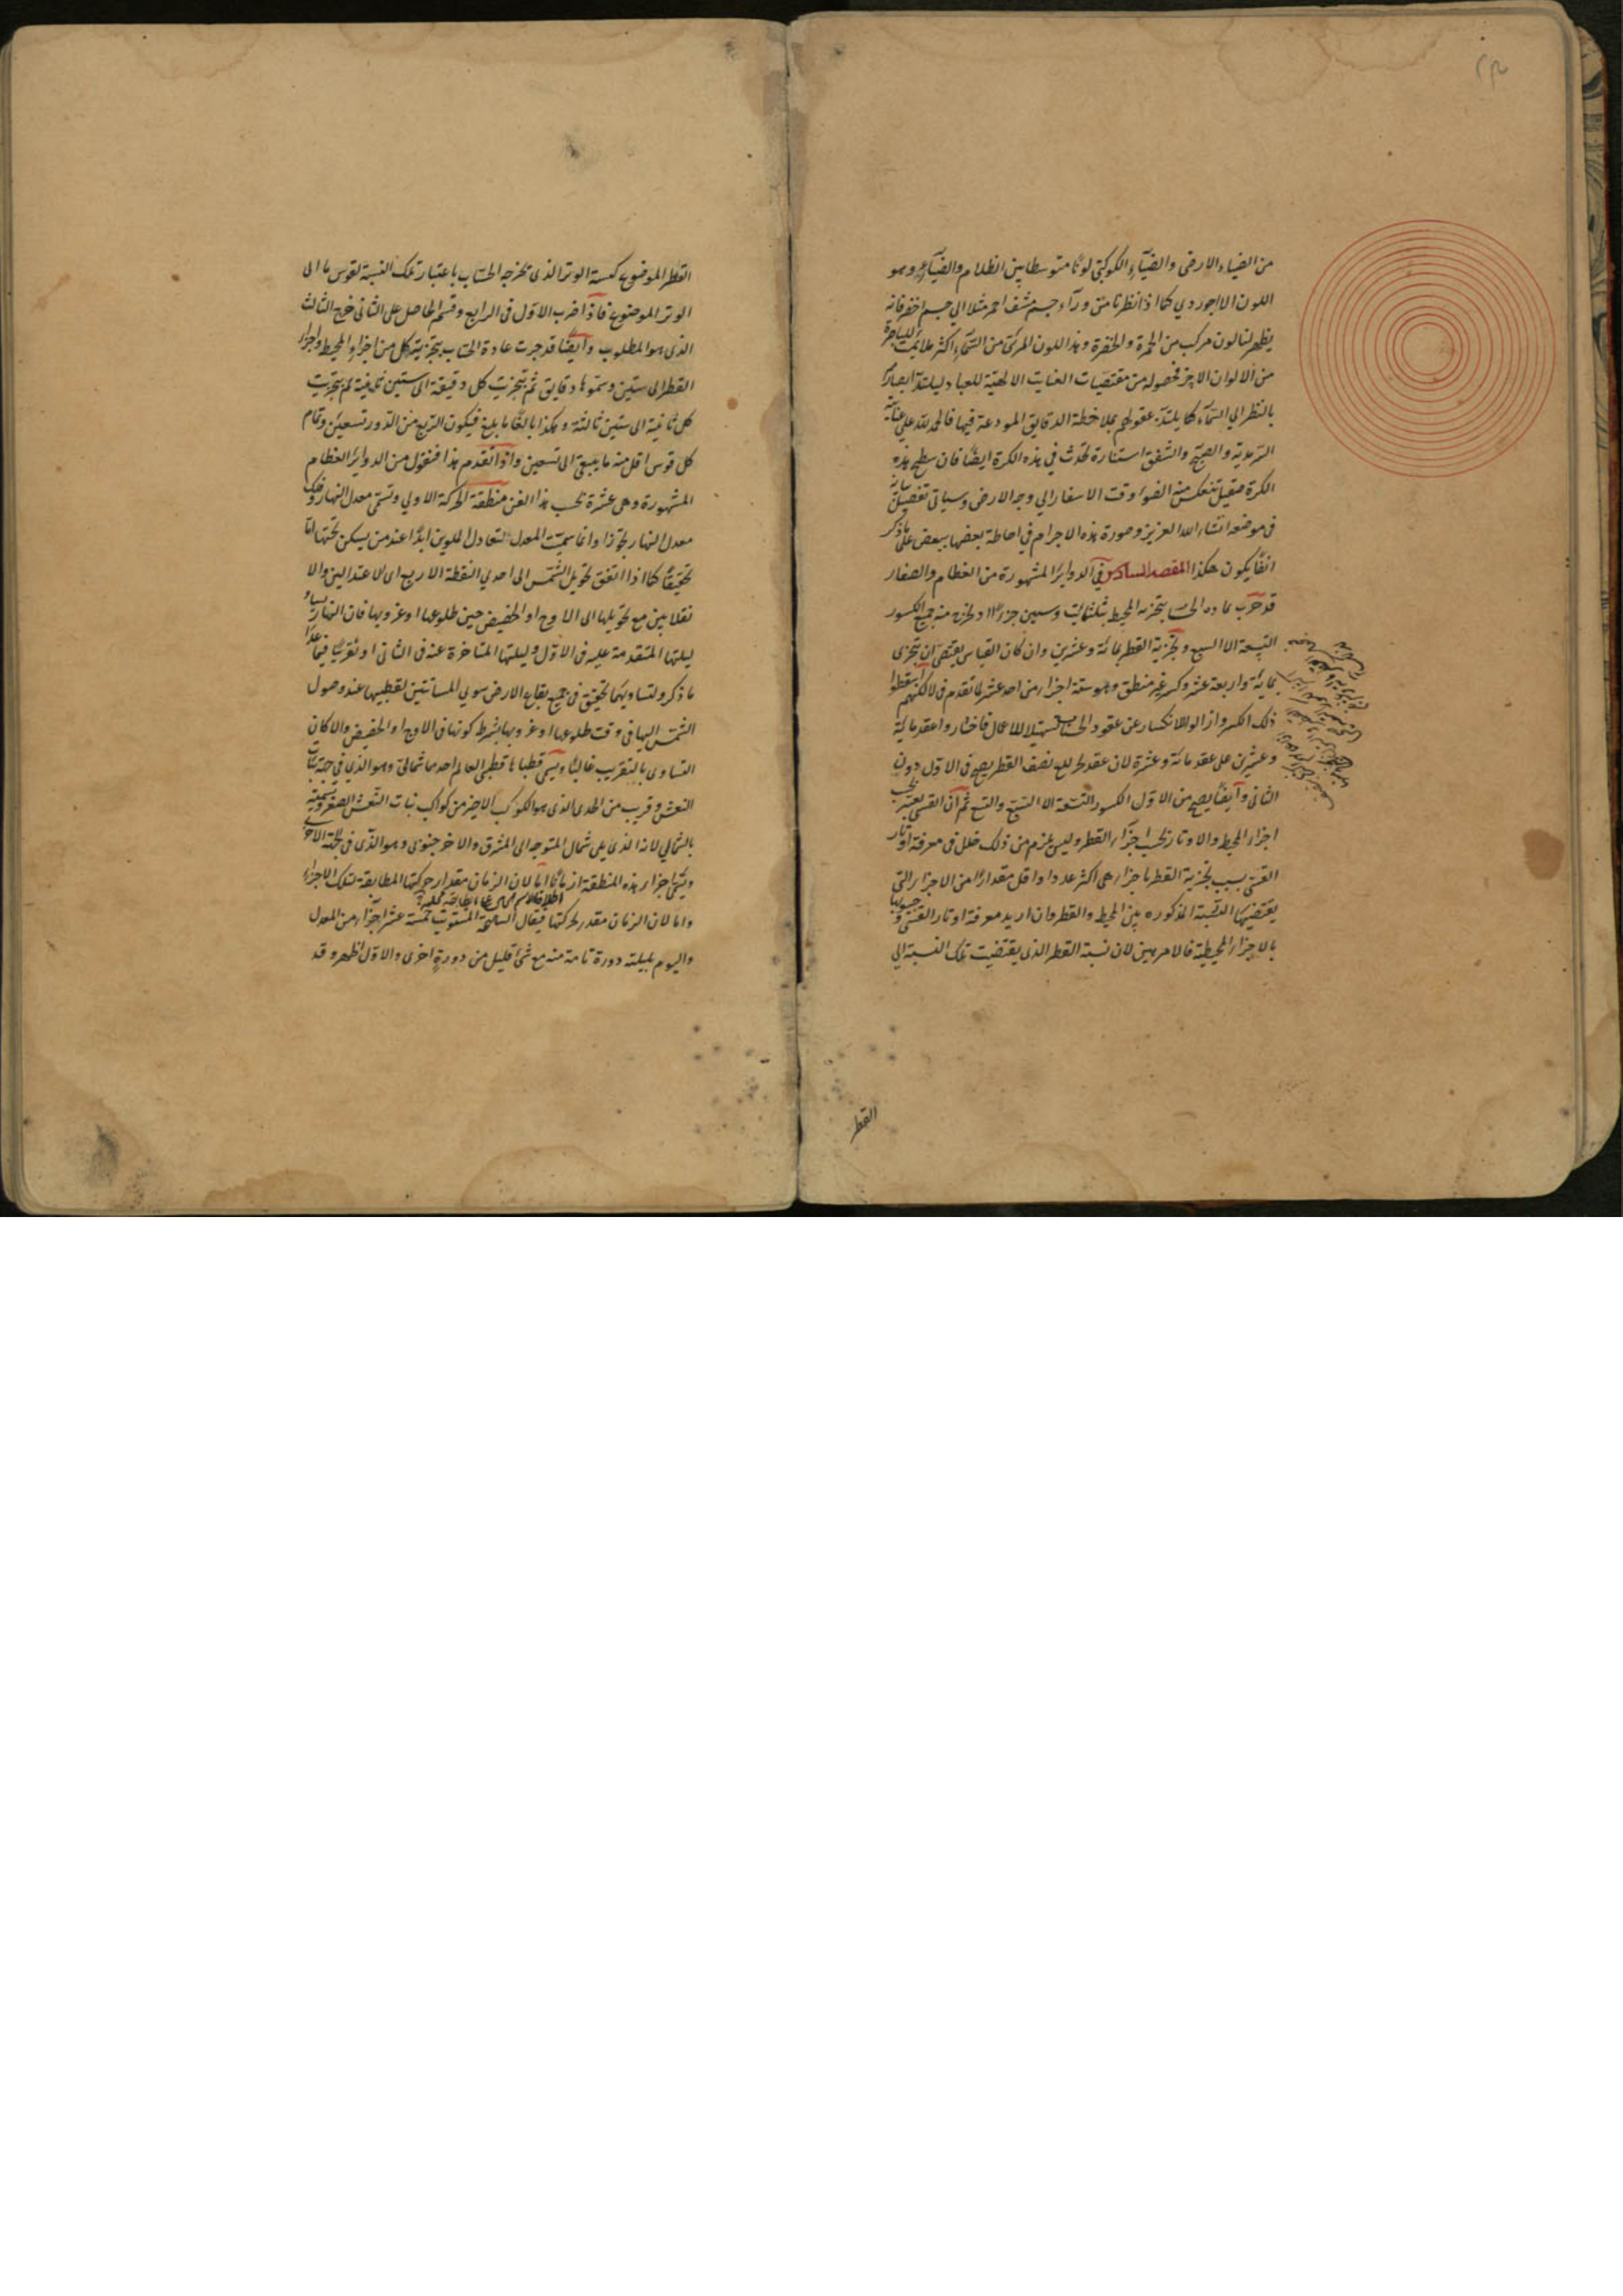 من الضياء الارضى والضياء الكوكبى لونًا متوسطا بين الظلام والضياء وهو
اللون اللاجوردي كما اذا نظرنا من وراء جسم مشف احمر مثلا الى جسم اخضر فانه
يظهر لنا لون مركب من الحمرة والخضرة وهذا اللون المرئى من السماء اكثر ملائمة للباصرة
من الالوان الاخر فحصوله من مقتضيات العناية الالهية للعباد ليلتذ ابصارهم
بالنظر الى السماء كما يلتذ عقولهم بملاحظة الدقايق المودعة فيها فالحمد لله على عنايته
السرمدية والصبح والشفق استنارة تحدث فى هذه الكرة ايضًا فان سطح هذه
الكرة صقيل تنعكس منه الضوء وقت الاسفار الى وجه الارض وسياتى تفصيل بيانه
فى موضعه انشاء الله العزيز وصورة هذه الاجرام فى احاطة بعضها ببعض على ما ذكر
انفًا يكون هكذا المقصد السادس فى الدواير المشهورة من العظام والصغار
قد جرت عادة الحساب بتجزية المحيط بثلثمائة وستين جزءا اذ يخرج منه جميع الكسور
التسعة الا السبع وتجزية القطر بمائة وعشرين وان كان القياس يقتضى ان يتجزى
بمائة واربعة عشر وكسر غير منطق وهو ستة اجزاء من احد عشر لما تقدم فى لا لكنهم اسقطوا
ذلك الكسر وازالوا الانكسار عن عقود الحساب تسهيلا للاعمال فاختار واعقد مائة
وعشرين على عقد مائة وعشرة لان عقد لربع نصف القطر يصح فى الاول دون
الثانى وايضًا يصح من الاول الكسور التسعة الا السبع والتسع ثم ان القسى يعتبر بحسب
اجزاء المحيط والاوتار بحسب اجزاء القطر وليس يلزم من ذلك خلل فى معرفة اوتار
القسى بسبب تجزية القطر باجزاء هى اكثر عددا واقل مقدارًا من الاجزاء التى
يقتضيها النسبة المذكورة بين المحيط والقطر وان اريد معرفة اوتار القسى وجيوبها
بالاجزاء المحيطية فالامر هين لان نسبة القطر الذى يقتضيت تلك النسبة الى
القطر
القطر الموضوع كنسبة الوتر الذى تخرجه الحساب باعتبار تلك النسبة لقوس ما الى
الوتر الموضوع فاذا ضرب الاول فى الرابع وقسم الحاصل على الثانى خرج الثالث
الذى هو المطلوب وايضًا قد جرت عادة الحساب بتجزية كل من اجزاء المحيط واجزاء
القطر الى ستين وسموها دقايق ثم بتجزيت كل دقيقة الى ستين ثانية ثم بتجزيت
كل ثانية الى ستين ثالثة وهكذا بالغًا ما بلغ فيكون الربع من الدور تسعين وتمام
كل قوس اقل منه ما يبقى الى تسعين واذا تقدم هذا فنقول من الدواير العظام
المشهورة وهى عشرة بحسب هذا الفن منطقة الحركة الاولى وتسمى معدل النهار وفلك
معدل النهار تجوزا وانما سميت المعدل لتعادل الملوين ابدًا عند من يسكن تحتها اما
تحقيقًا كما اذا اتفق تحويل الشمس الى احدى النقطة الاربع اى الاعتدالين والا
نقلابين مع تحويلها الى الاوج او الحضيض حين طلوعها او غروبها فان النهار يساوى
ليلتها المتقدمة عليه فى الاول وليلتها المتاخرة عنه فى الثانى او تقريبًا فيما عدا
ما ذكر ولتساويهما تحقيق فى جميع بقاع الارض سوى المسامتتين لقطبيها عند وصول
الشمس اليها فى وقت طلوعها او غروبها بشرط كونها فى الاوج او الحضيض والا كان
التساوى بالتقريب غالبًا ويسمى قطباها قطبى العالم احدهما شمالى وهو الذى فى جهة بنات
النعش وقريب من الجدى الذى هو الكوكب الاخير من كواكب بنات النعش الصغرى وتسميته
بالشمالى لانه الذى يلى شمال المتوجه الى المشرق والاخر جنوبى وهو الذى فى الجهة الاخرى
ويسمى اجزاء هذه المنطقة ازمانًا اما لان الزمان مقدار حركتها المطابقة لتلك الاجزاء
واما لان الزمان مقدر لحركتها فيقال الساعة المستوية خمسة عشر اجزاء من المعدل
واليوم بليلته دورة تامة منه مع شئ قليل من دورة اخرى والاول اظهر وقد